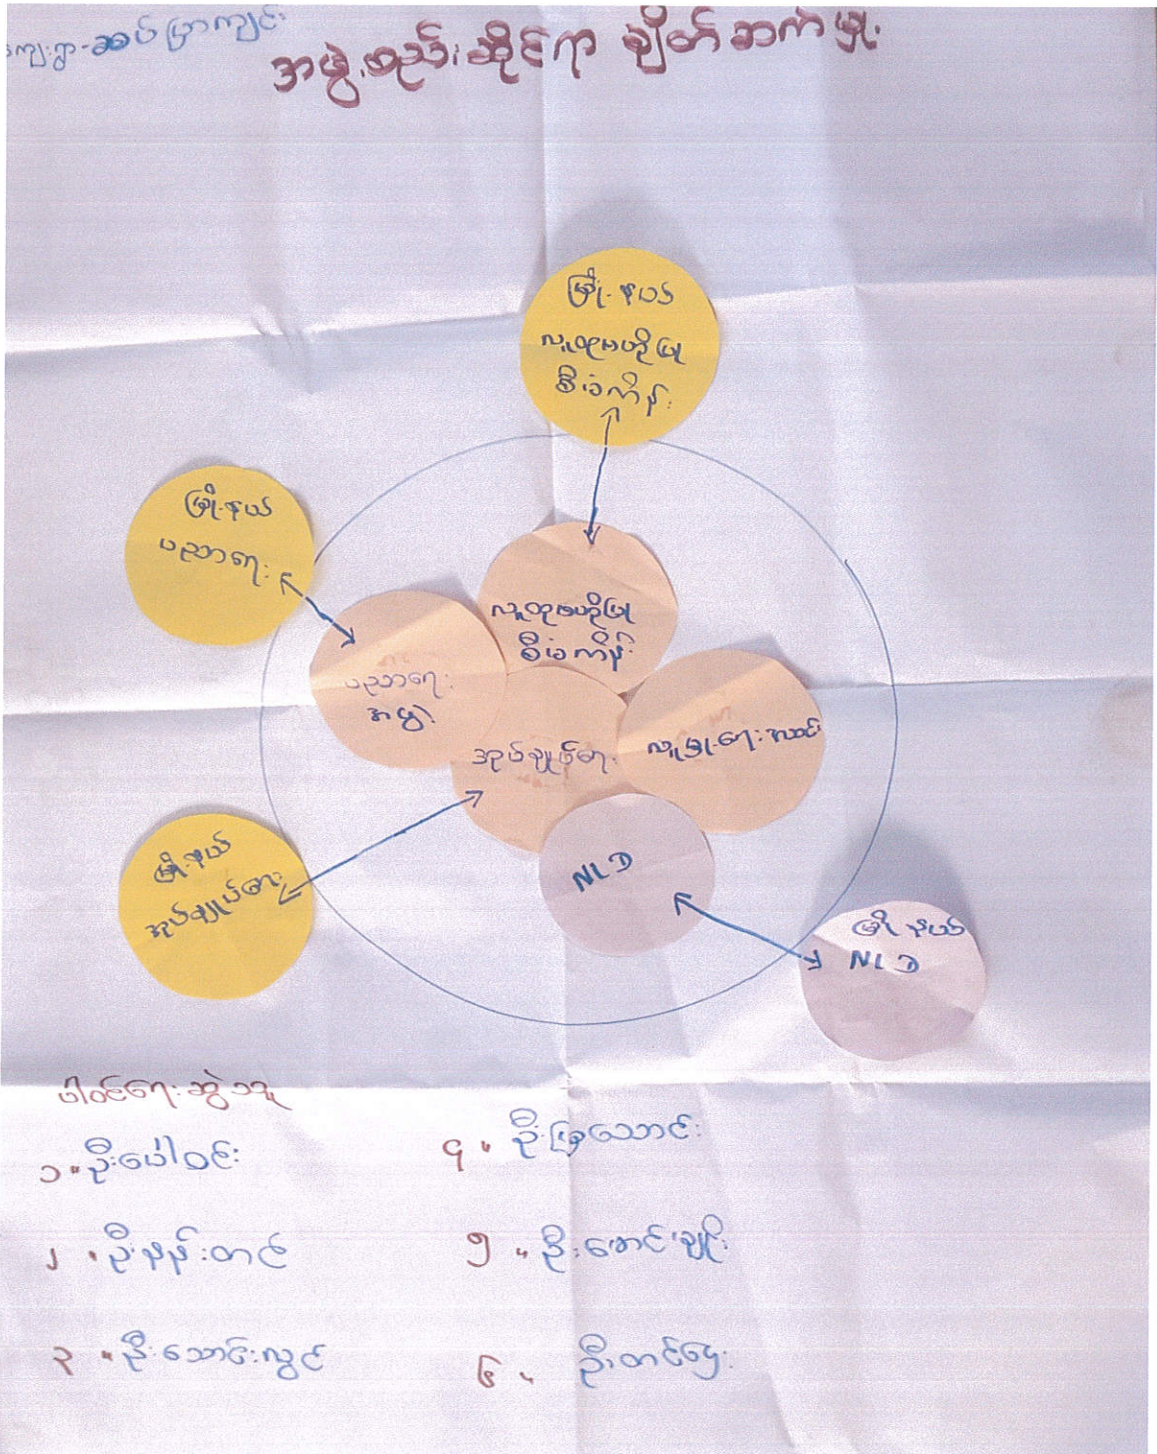 ကျေးရွာ-ဆပ်ပြာကျင်း
အဖွဲ့အစည်းဆိုင်ရာ ချိတ်ဆက်မှု
မြို့နယ်
လူထုဗဟိုပြု
စီမံကိန်း
မြို့နယ်
ပညာရေး
လူထုဗဟိုပြု
စီမံကိန်း
ပညာရေး
အဖွဲ့
အုပ်ချုပ်ရေး
လူမှုရေးအသင်း
NLD
မြို့နယ်
အုပ်ချုပ်ရေး
မြို့နယ်
NLD
ပါဝင်ရေးဆွဲသူ
၁။ ဦးပေါ်ဝင်း
၂။ ဦးနန်းတင်
၃။ ဦးသောင်းလွင်
၄။ ဦးမြသောင်း
၅။ ဦးမောင်ချိုး
၆။ ဦးတင်ဌေး